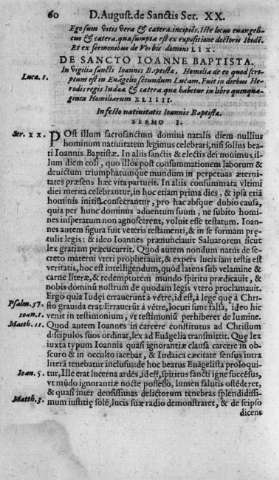 60 D. August. de Sanctis Ser. XX.
Ego sum Vitis Vera & cætera
tus & cætera
Et ex sermonibus de Verbis domini LIX.
DE SANCTO IOANNE BAPTISTA.
In Vigilia sancti Ioannis Baptistæ, Homilia de eo quod scri-
Luca. 1. ptum est in Euágelio secundum Lucam. Fuit in diebus He-
rodis regis Iudeæ & cætera quæ habetur in libro quinqua-
ginta Homiliarum XLIIII.
In festo natiuitatis Ioannis Baptistæ.
SERMO I.
Ser. XX. POst illum sacrosanctum domini natalis diem nullius
hominum natiuitatem legimus celebrari, nisi solius bea-
ti Ioannis Baptistæ. In aliis sanctis & electis dei nouimus il-
lum diem coli, quo illos post consummationem laborum &
deuictum triumphatumque mundum in perpetuas æterni-
tates præsens hæc vita parturit. In aliis consummata vltimi
diei merita celebrantur, in hoc etiam prima dies, & ipsa etiá
hominis initia consecrantur, pro hac absque dubio causa,
quia per hunc dominus aduentum suum, ne subito homi-
nes insperatum non agnoscerent, voluit esse testatum. Ioannes
autem figura fuit veteris testamenti, & in se formam præ-
tulit legis: & ideo Ioannes prænuntiauit Saluatorem sicut
lex gratiam præcucurrit. Quod autem nondum natus de se-
creto materni vteri prophetauit, & expers lucis iam testis est
veritatis, hoc est intelligendum, quòd latens sub velamine &
carne literæ, & redemptorem mundo spiritu prædicauit, &
nobis dominú nostrum de quodam legis vtero proclamauit.
Ergo quia Iudæi errauerunt à vétre, id est, à lege quæ à Chri-
Psalm. 57. sto grauida erat. Errauerút à vétre, locuti sunt falsa, ideo hic
Ioan. 1. venit in testimonium, vt testimonium perhiberet de lumine.
Matth. 11. Quòd autem Ioannes in carcere constitutus ad Christum
discipulos suos ordinat, lex ad Euágelia transmittit. Quæ lex
iuxta typum Ioannis quasi ignorantiæ clausa carcere in ob-
scuro & in occulto iacebat, & Iudaica cæcitate sensus intra
literá tenebatur inclusus de hoc beatus Euágelista proloqui-
Ioan. 5. tur, Ille erat lucerna ardés, id est, spiritus sancti igne succésus,
vt múdo ignorantiæ nocte possesso, lumen salutis ostéderet,
& quasi inter desissimas delictorum tenebras splendidissi-
Matth. 3. mum iustitiæ solé, lucis suæ radio demonstraret, & de seipso
dicens